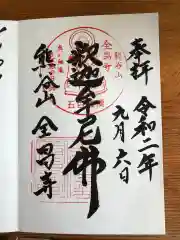 奉拝
令和二年
九月六日
釈迦牟尼佛
熊谷山
全昌寺
熊谷山
全昌寺